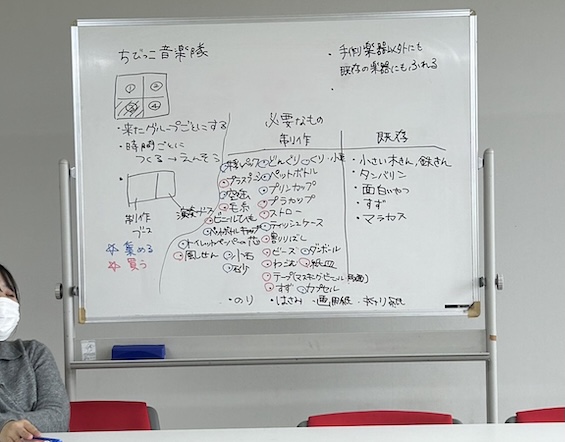 ちびっこ音楽隊
① ②
③ ④
・来たグループごとにする
・時間ごとに
つくる→えんそう
制作
ブース
演奏ブース
☆集める
☆買う
・手作り楽器以外にも
既存の楽器にもふれる
・
必要なもの
制作
牛乳パック どんぐり くり・小豆
プラスプーン ペットボトル
空缶 プリンカップ
毛糸 プラカップ
ストロー
ビニールひも ティッシュケース
ペットボトルキャップ 割りばし
トイレットペーパーの芯 ビーズ ダンボール
風せん 小石 わごむ 紙皿
砂 テープ(マスキング・ビニール・両面)
すず カプセル
・のり ・はさみ ・画用紙
既存
・小さい木きん、鉄きん
・タンバリン
・面白いやつ
・すず
・マラカス